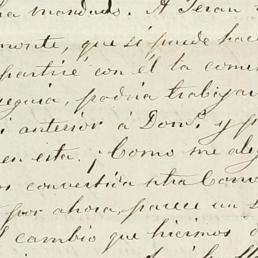 ha mandado. A Teran
monte, que si puede hace
partiré con él la comi
seguia, podria trabajar
i anterior à Domo. y p
en esta. ¡Como me aleg
os convertida ntra Con
por ahora, parece un s
l cambio que hicimos d